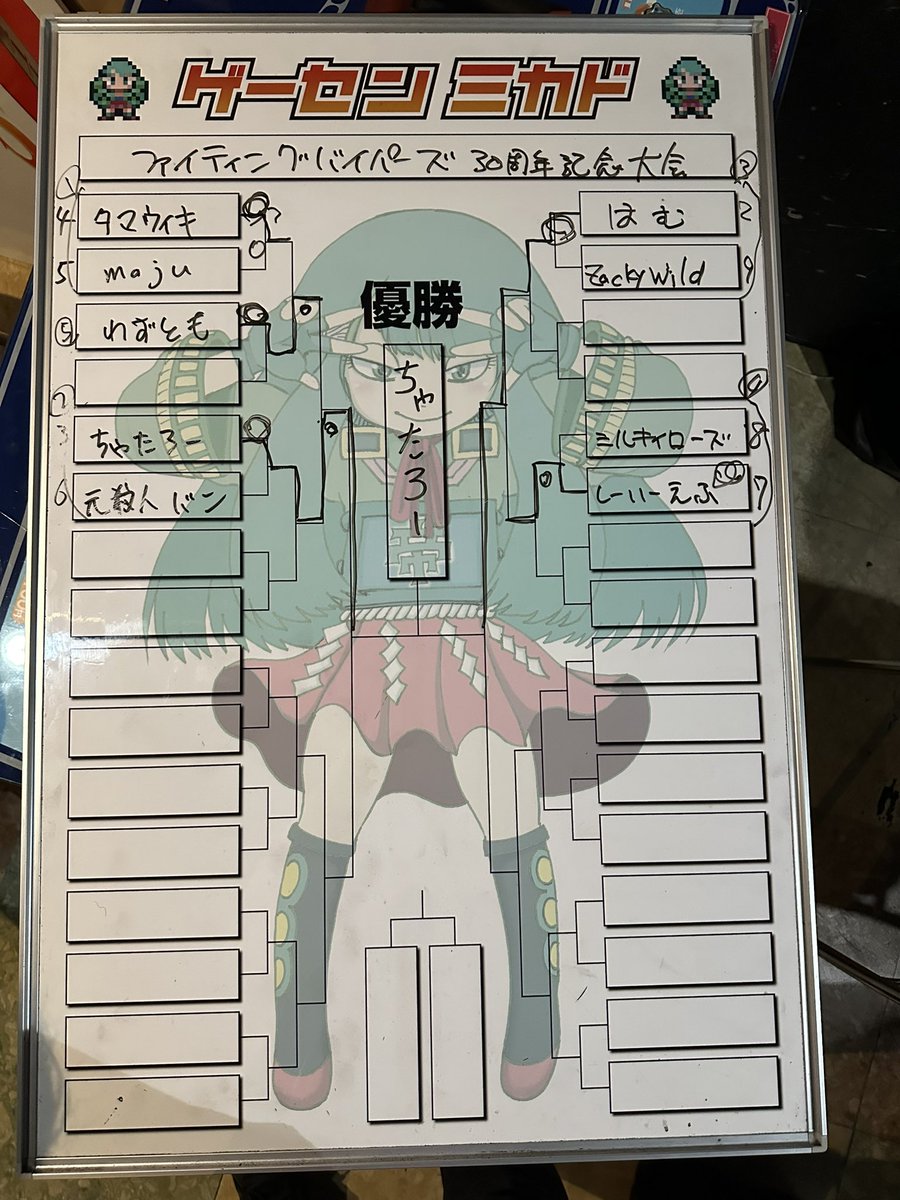 ゲーセン ミカド
ファイティングバイパーズ 30周年記念大会
① ③
4 タマウィキ
はむ 2
5 maju
Zackywild 9
優勝
ちゃたろー
⑤ わずとも
② ④
3 ちゃたろー
ミルキィローズ 8
6 元殺人 バン
しーいーえふ 10 7